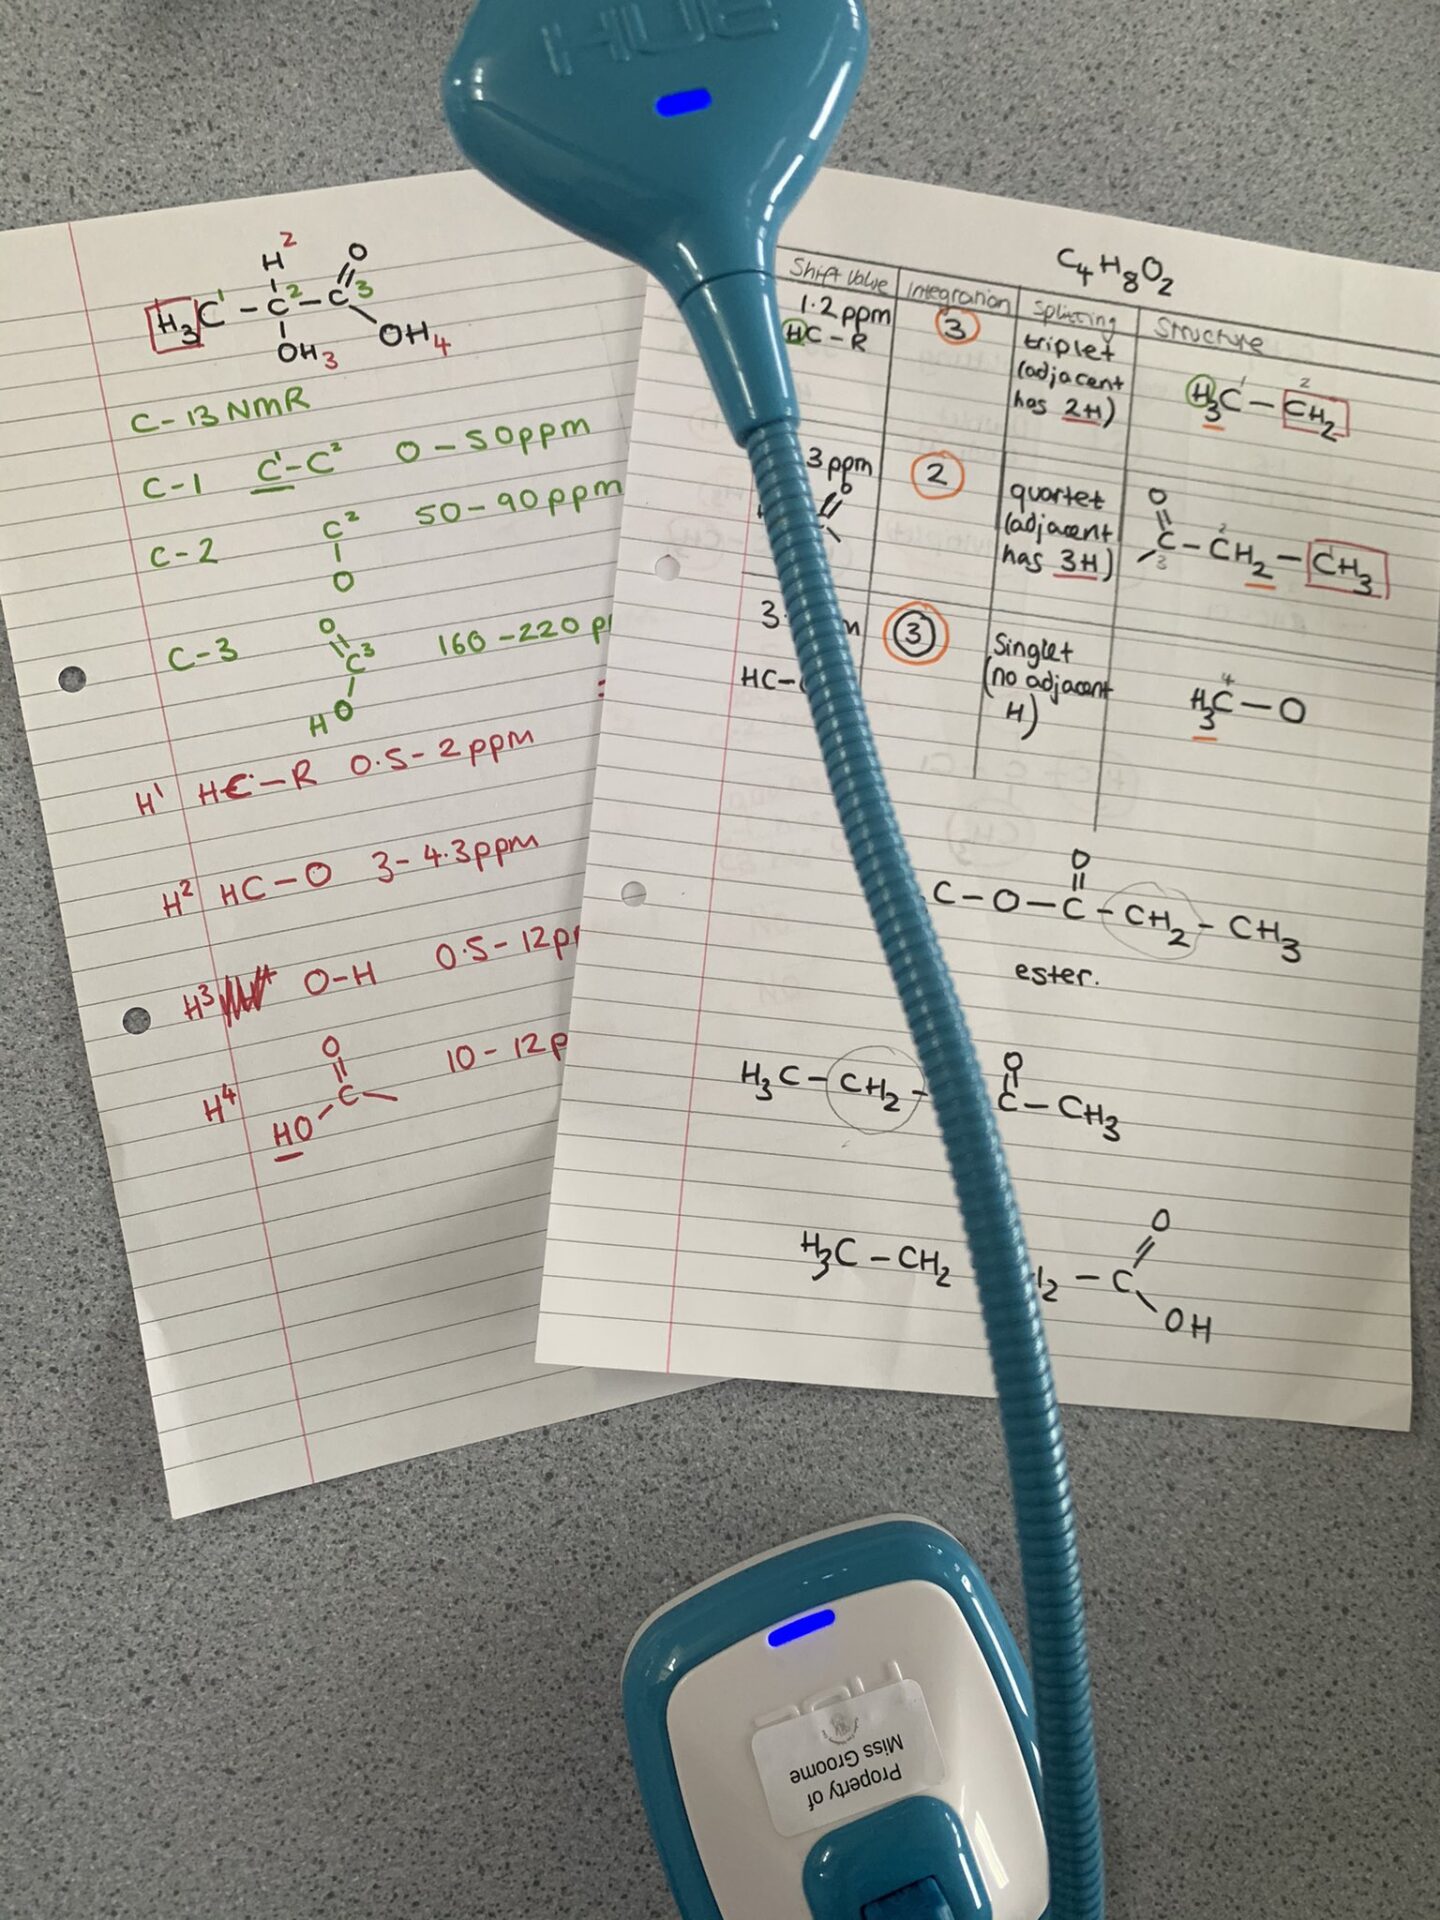 HUE
H 2
O
H3C 1 - C 2 - C 3
OH 3
OH 4
C-13 NMR
C-1 C1-C2 0-50ppm
C-2 C2 50-90ppm
O
O
C-3 C3 160-220
HO
H1 HC-R 0.5-2ppm
H2 HC-O 3-4.3ppm
H3 O-H 0.5-12
O
H4 C 10-12
HO
C4H8O2
Shift value Integration Splitting Structure
1.2ppm 3 triplet
HC-R (adjacent
has 2H)
H3C 1 - CH2 2
3ppm 2 quartet
O (adjacent
has 3H)
O
C 3 - CH2 2 - CH3 1
3 Singlet
HC- (no adjacent
H)
H3C 4 - O
O
C-O-C-CH2-CH3
ester.
O
H3C-CH2- C-CH3
O
H3C-CH2 -C
OH
Property of
Miss Groome